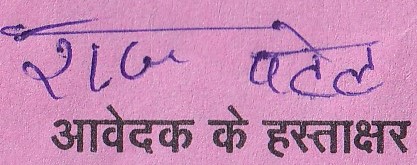 राज पटेल
आवेदक के हस्ताक्षर